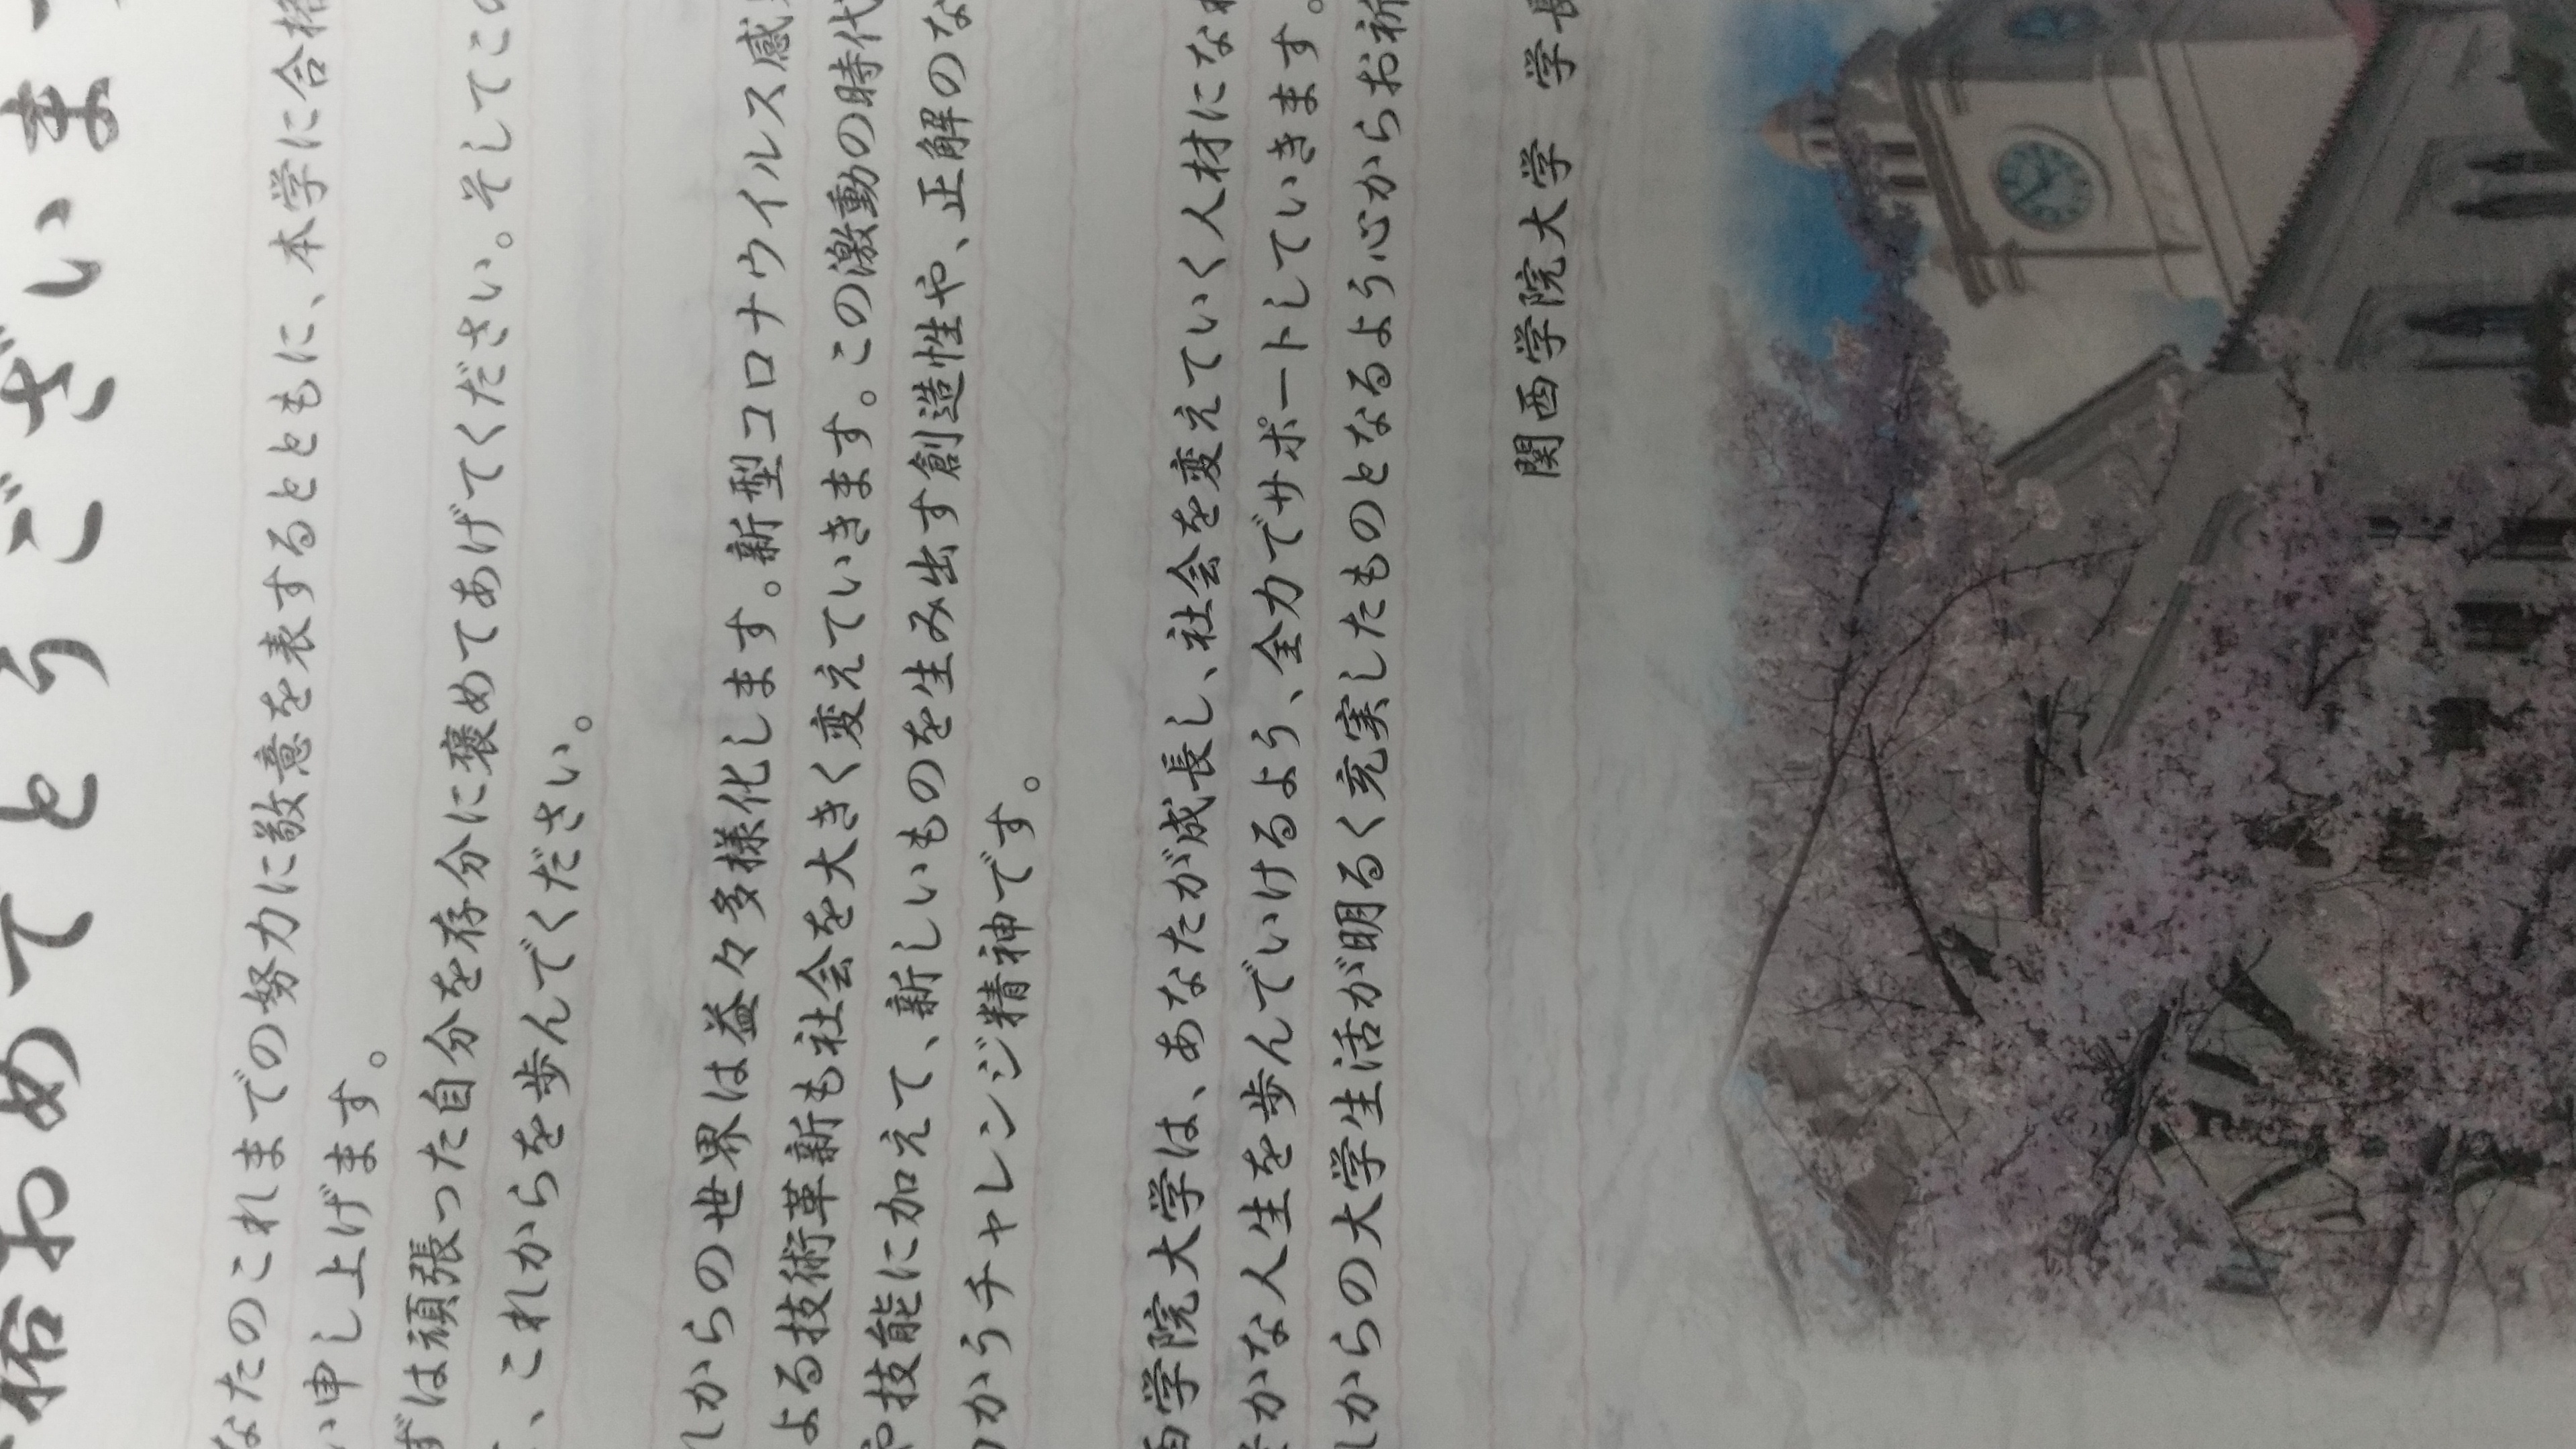 格おめでとうございま
なたのこれまでの努力に敬意を表するとともに、本学に合格
い申し上げます。
ずは頑張った自分を存分に褒めてあげてください。そしてこの
、これからを歩んでください。
れからの世界は益々多様化します。新型コロナウイルス感
よる技術革新も社会を大きく変えていきます。この激動の時代
や技能に加えて、新しいものを生み出す創造性や、正解のな
かうチャレンジ精神です。
西学院大学は、あなたが成長し、社会を変えていく人材になれ
かな人生を歩んでいけるよう、全力でサポートしていきます。
れからの大学生活が明るく充実したものとなるよう心からお祈
関西学院大学 学長